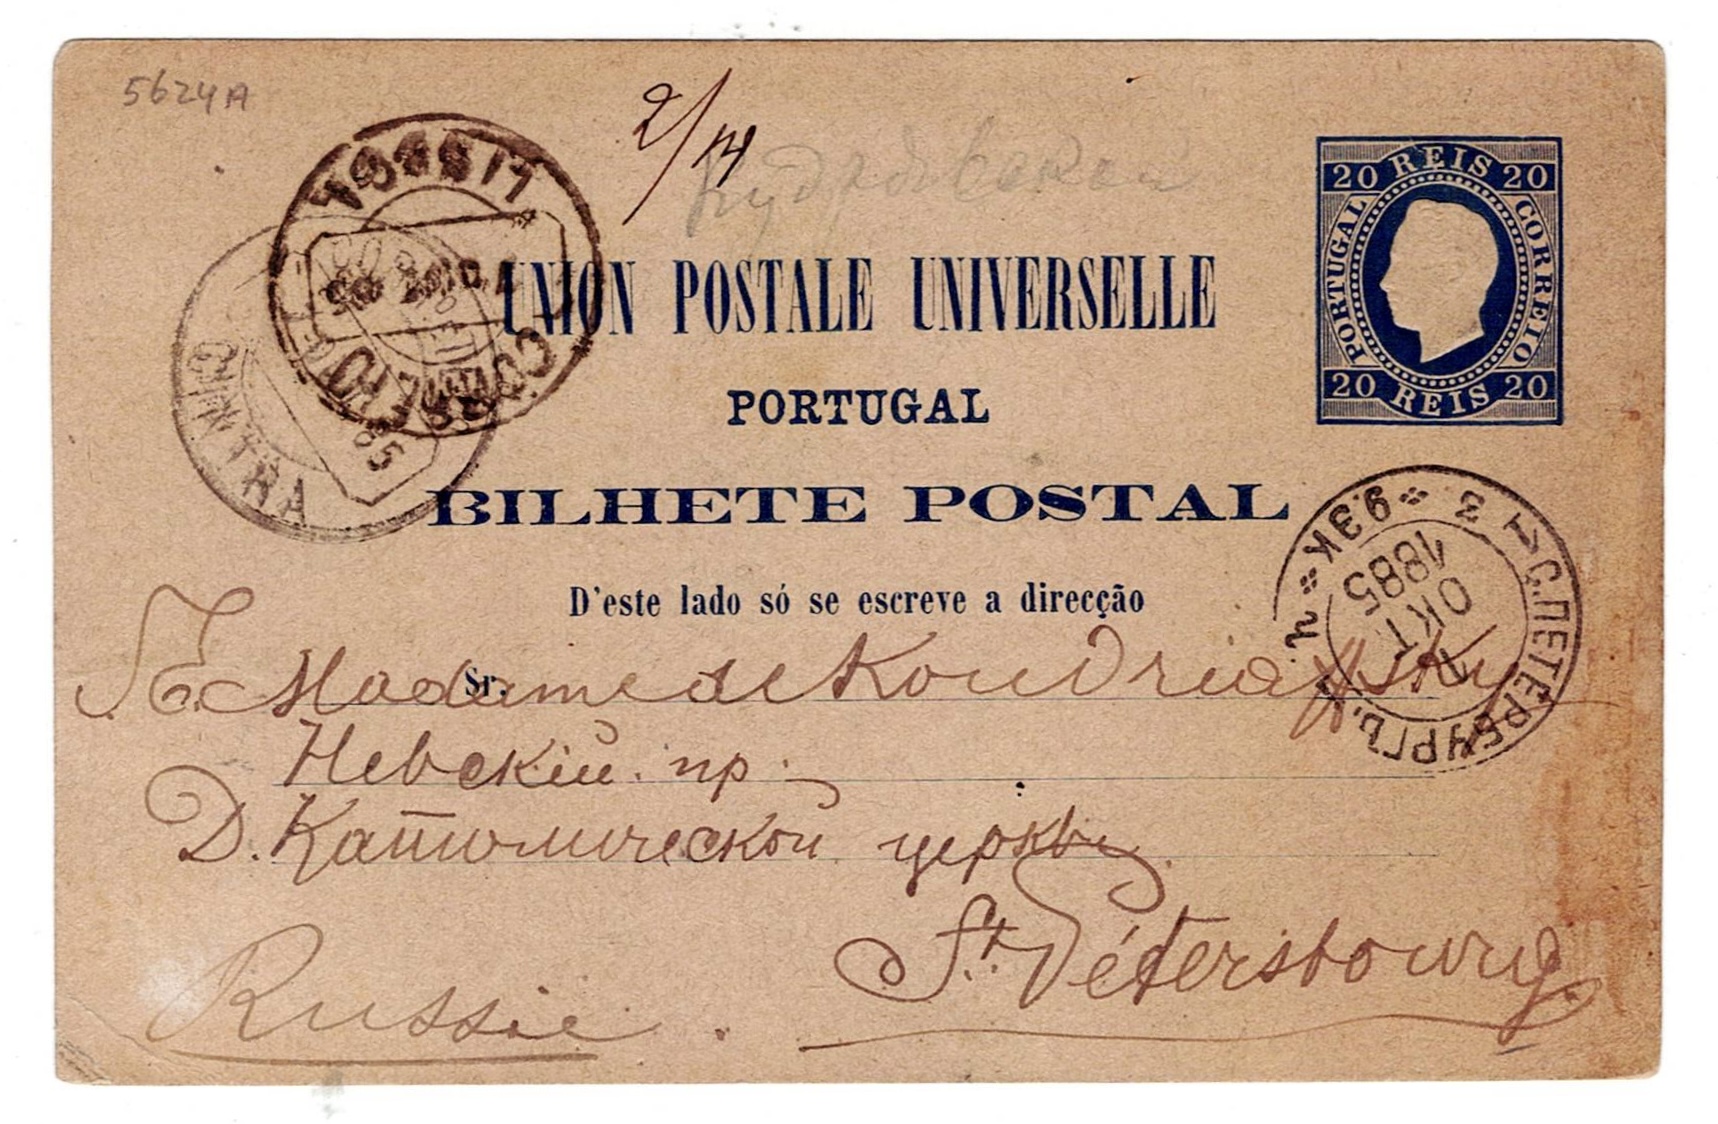 5624A
2/14
20 REIS 20
PORTUGAL
CORREIO
20 REIS 20
UNION POSTALE UNIVERSELLE
PORTUGAL
BILHETE POSTAL
D'este lado só se escreve a direcção
LISBOA
CORREIO
CINTRA
85
С.ПЕТЕРБУРГЪ.
9.ЭК
ОКТ
1885
Sr.
S. E. Madame de Kondriaffsky
Невскій пр.
Д. Католической церкви.
St. Pétersbourg.
Russie.